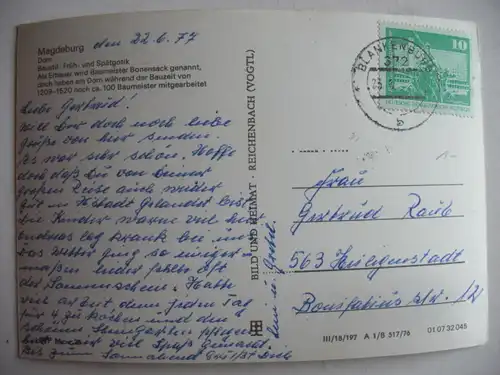 Magdeburg den 22.6.77
Dom
Baustil: Früh- und Spätgotik
Als Erbauer wird Baumeister Bonensack genannt,
doch haben am Dom während der Bauzeit von
1209–1520 noch ca. 100 Baumeister mitgearbeitet
Liebe Gertrud!
Will Dir doch noch liebe
Grüße von hier senden.
Es war sehr schön. Hoffe
doch daß Du von Deiner
großen Reise auch wieder
gut in H'stadt gelandet bist.
Die Kinder waren viel
krank bei uns
das Wetter ging so einiger-
maßen leider fehlte oft
der Sonnenschein. Hatte
viel Arbeit, denn jeden Tag
für 4 zu kochen und den
schönen Steingarten pflegen
hat mir viel Spaß gemacht.
Bis zum Sonnabend Grüßt Dich
BILD UND HEIMAT · REICHENBACH (VOGTL)
BLANKENBURG
372
10
Frau
Gertrud Raub
563 Heiligenstadt
Bonifatius str. 12
III/18/197 A 1/B 317/76 01 07 32 045